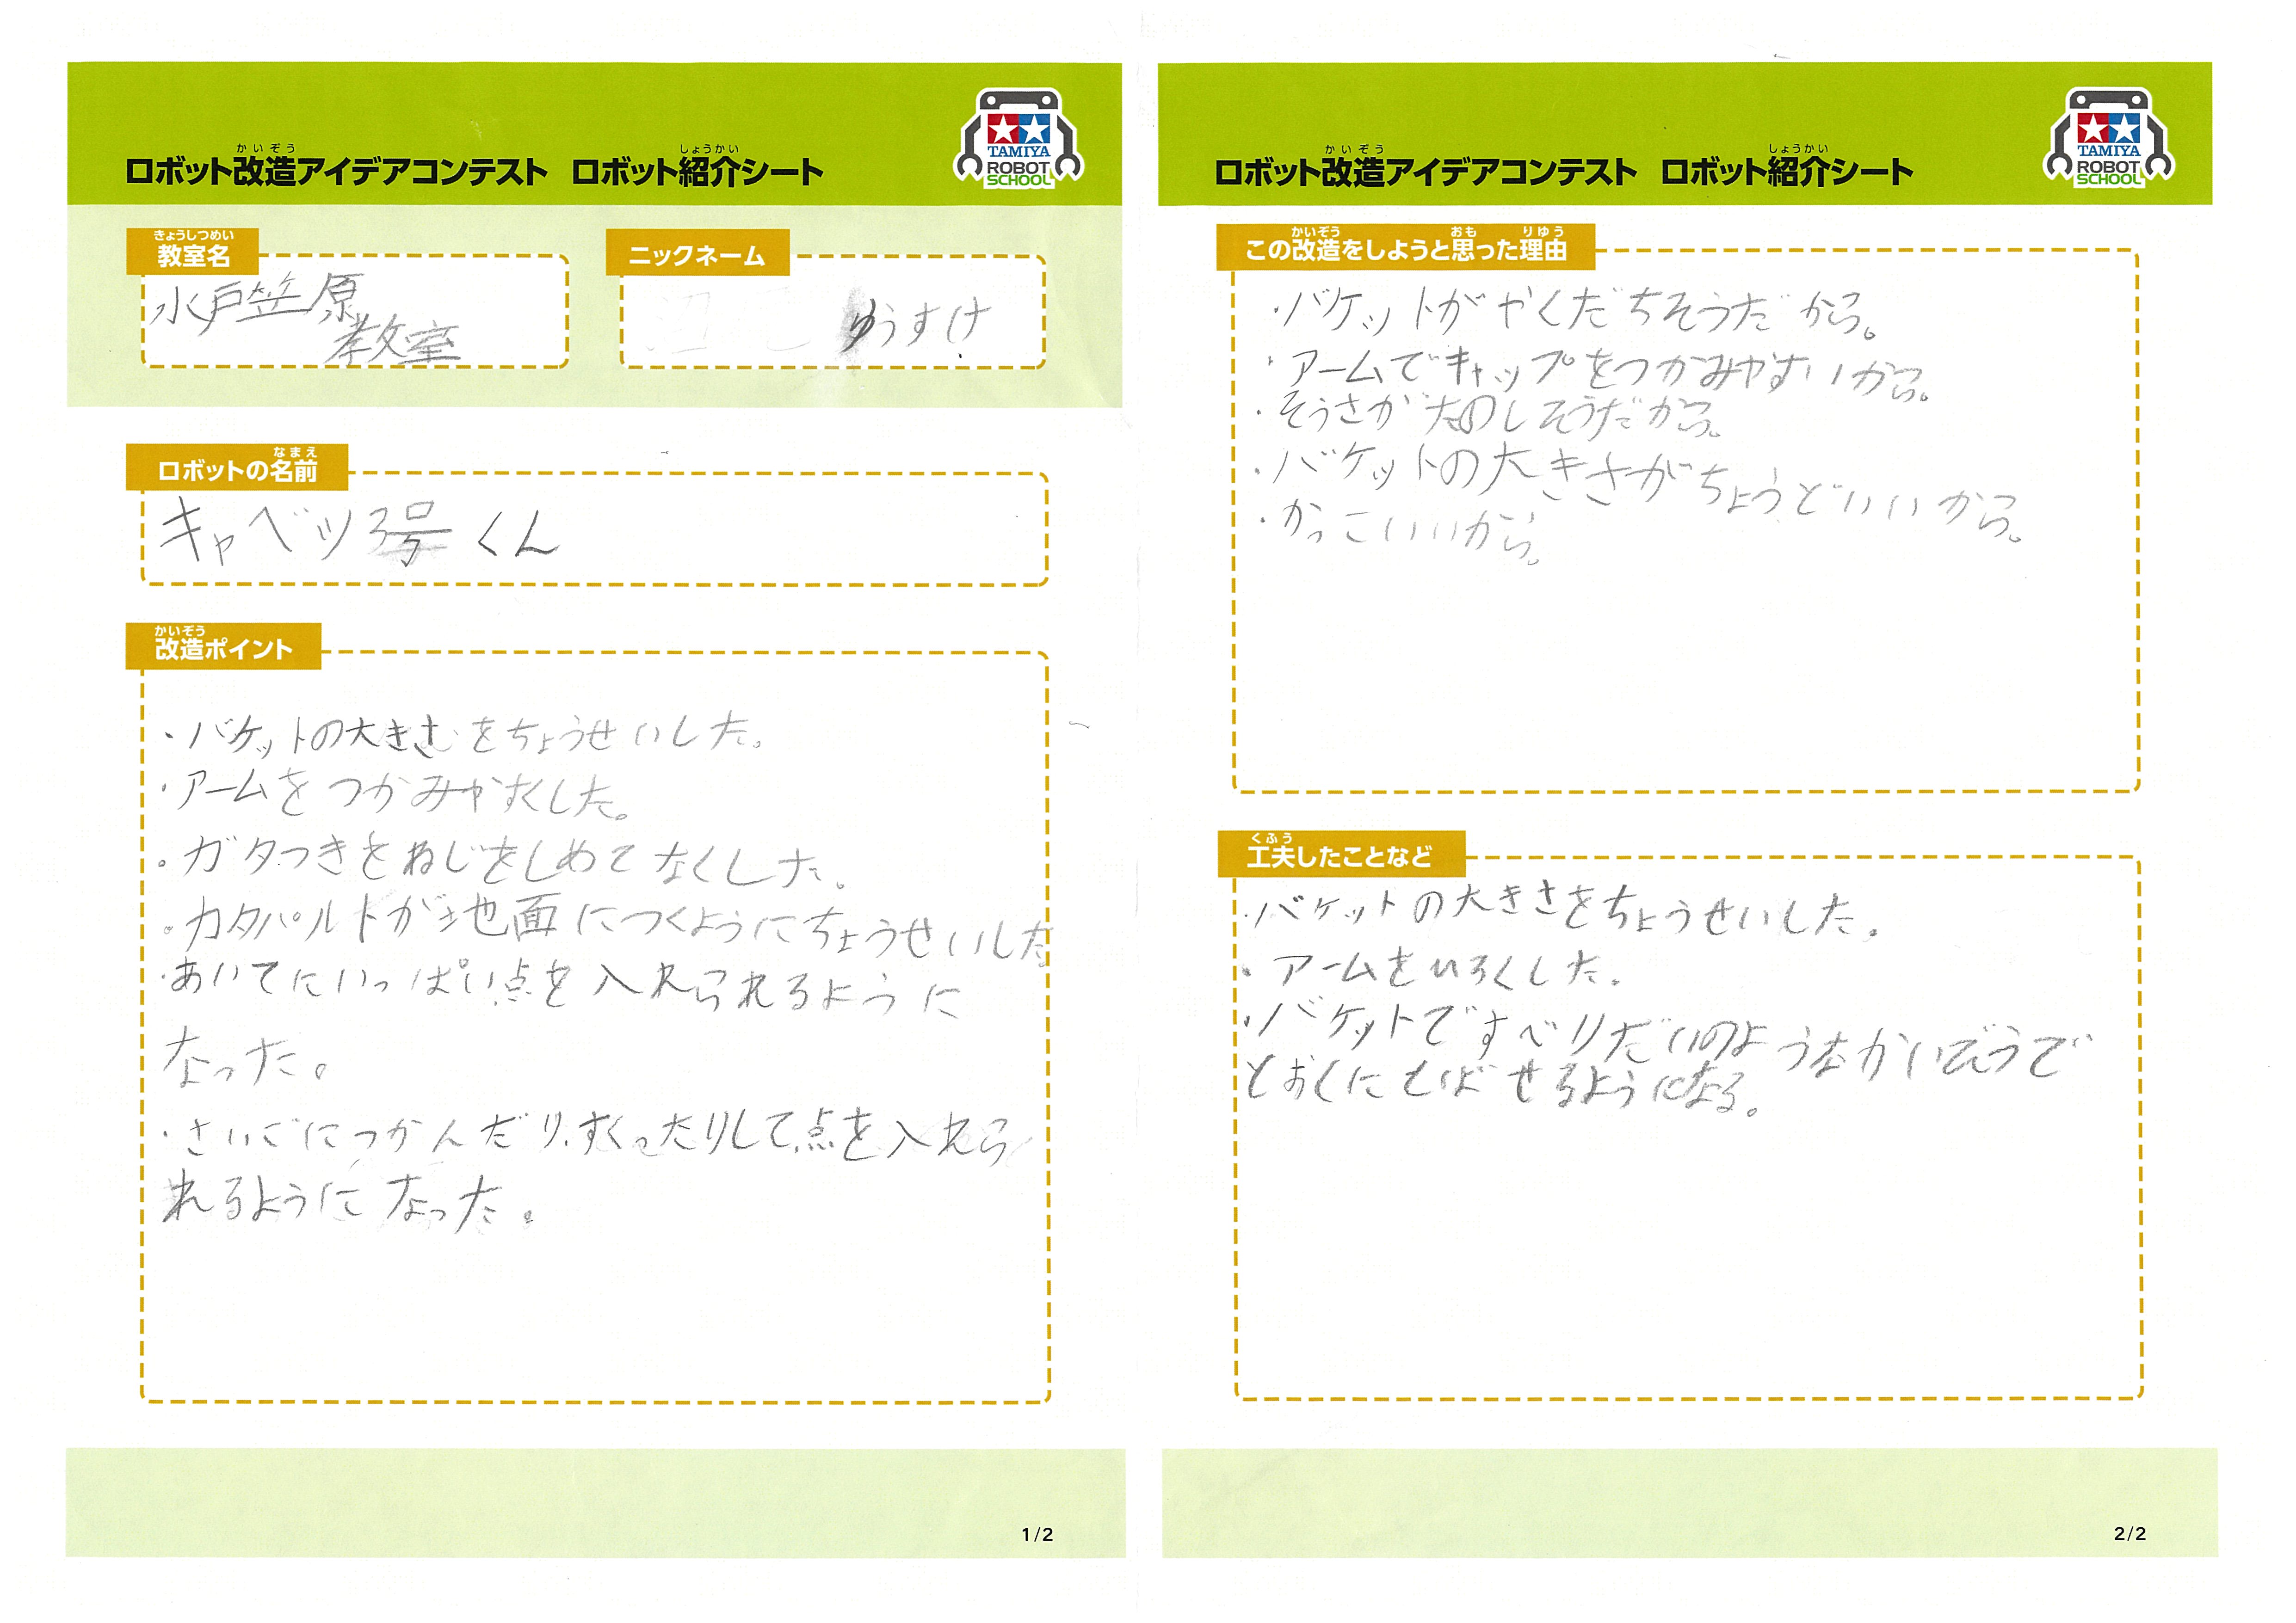 かいぞう しょうかい
ロボット改造アイデアコンテスト ロボット紹介シート
TAMIYA
ROBOT
SCHOOL
きょうしつめい
教室名
水戸笠原
教室
ニックネーム
ゆうすけ
なまえ
ロボットの名前
キャベツ3号くん
かいぞう
改造ポイント
・バケットの大きさをちょうせいした。
・アームをつかみやすくした。
。ガタつきをねじをしめてなくした。
。カタパルトが地面につくようにちょうせいした
・あいてにいっぱい点を入れられるように
なった。
・さいごにつかんだり、すくったりして、点を入れら
れるようになった。
1/2
かいぞう しょうかい
ロボット改造アイデアコンテスト ロボット紹介シート
TAMIYA
ROBOT
SCHOOL
かいぞう おも りゆう
この改造をしようと思った理由
・バケットがやくだちそうだから。
・アームでキャップをつかみやすいから。
・そうさがたのしそうだから。
・バケットの大きさがちょうどいいから。
・かっこいいから。
くふう
工夫したことなど
・バケットの大きさをちょうせいした。
・アームをひろくした。
・バケットですべりだいのようなかいぞうで
とおくにとばせるようになる。
2/2